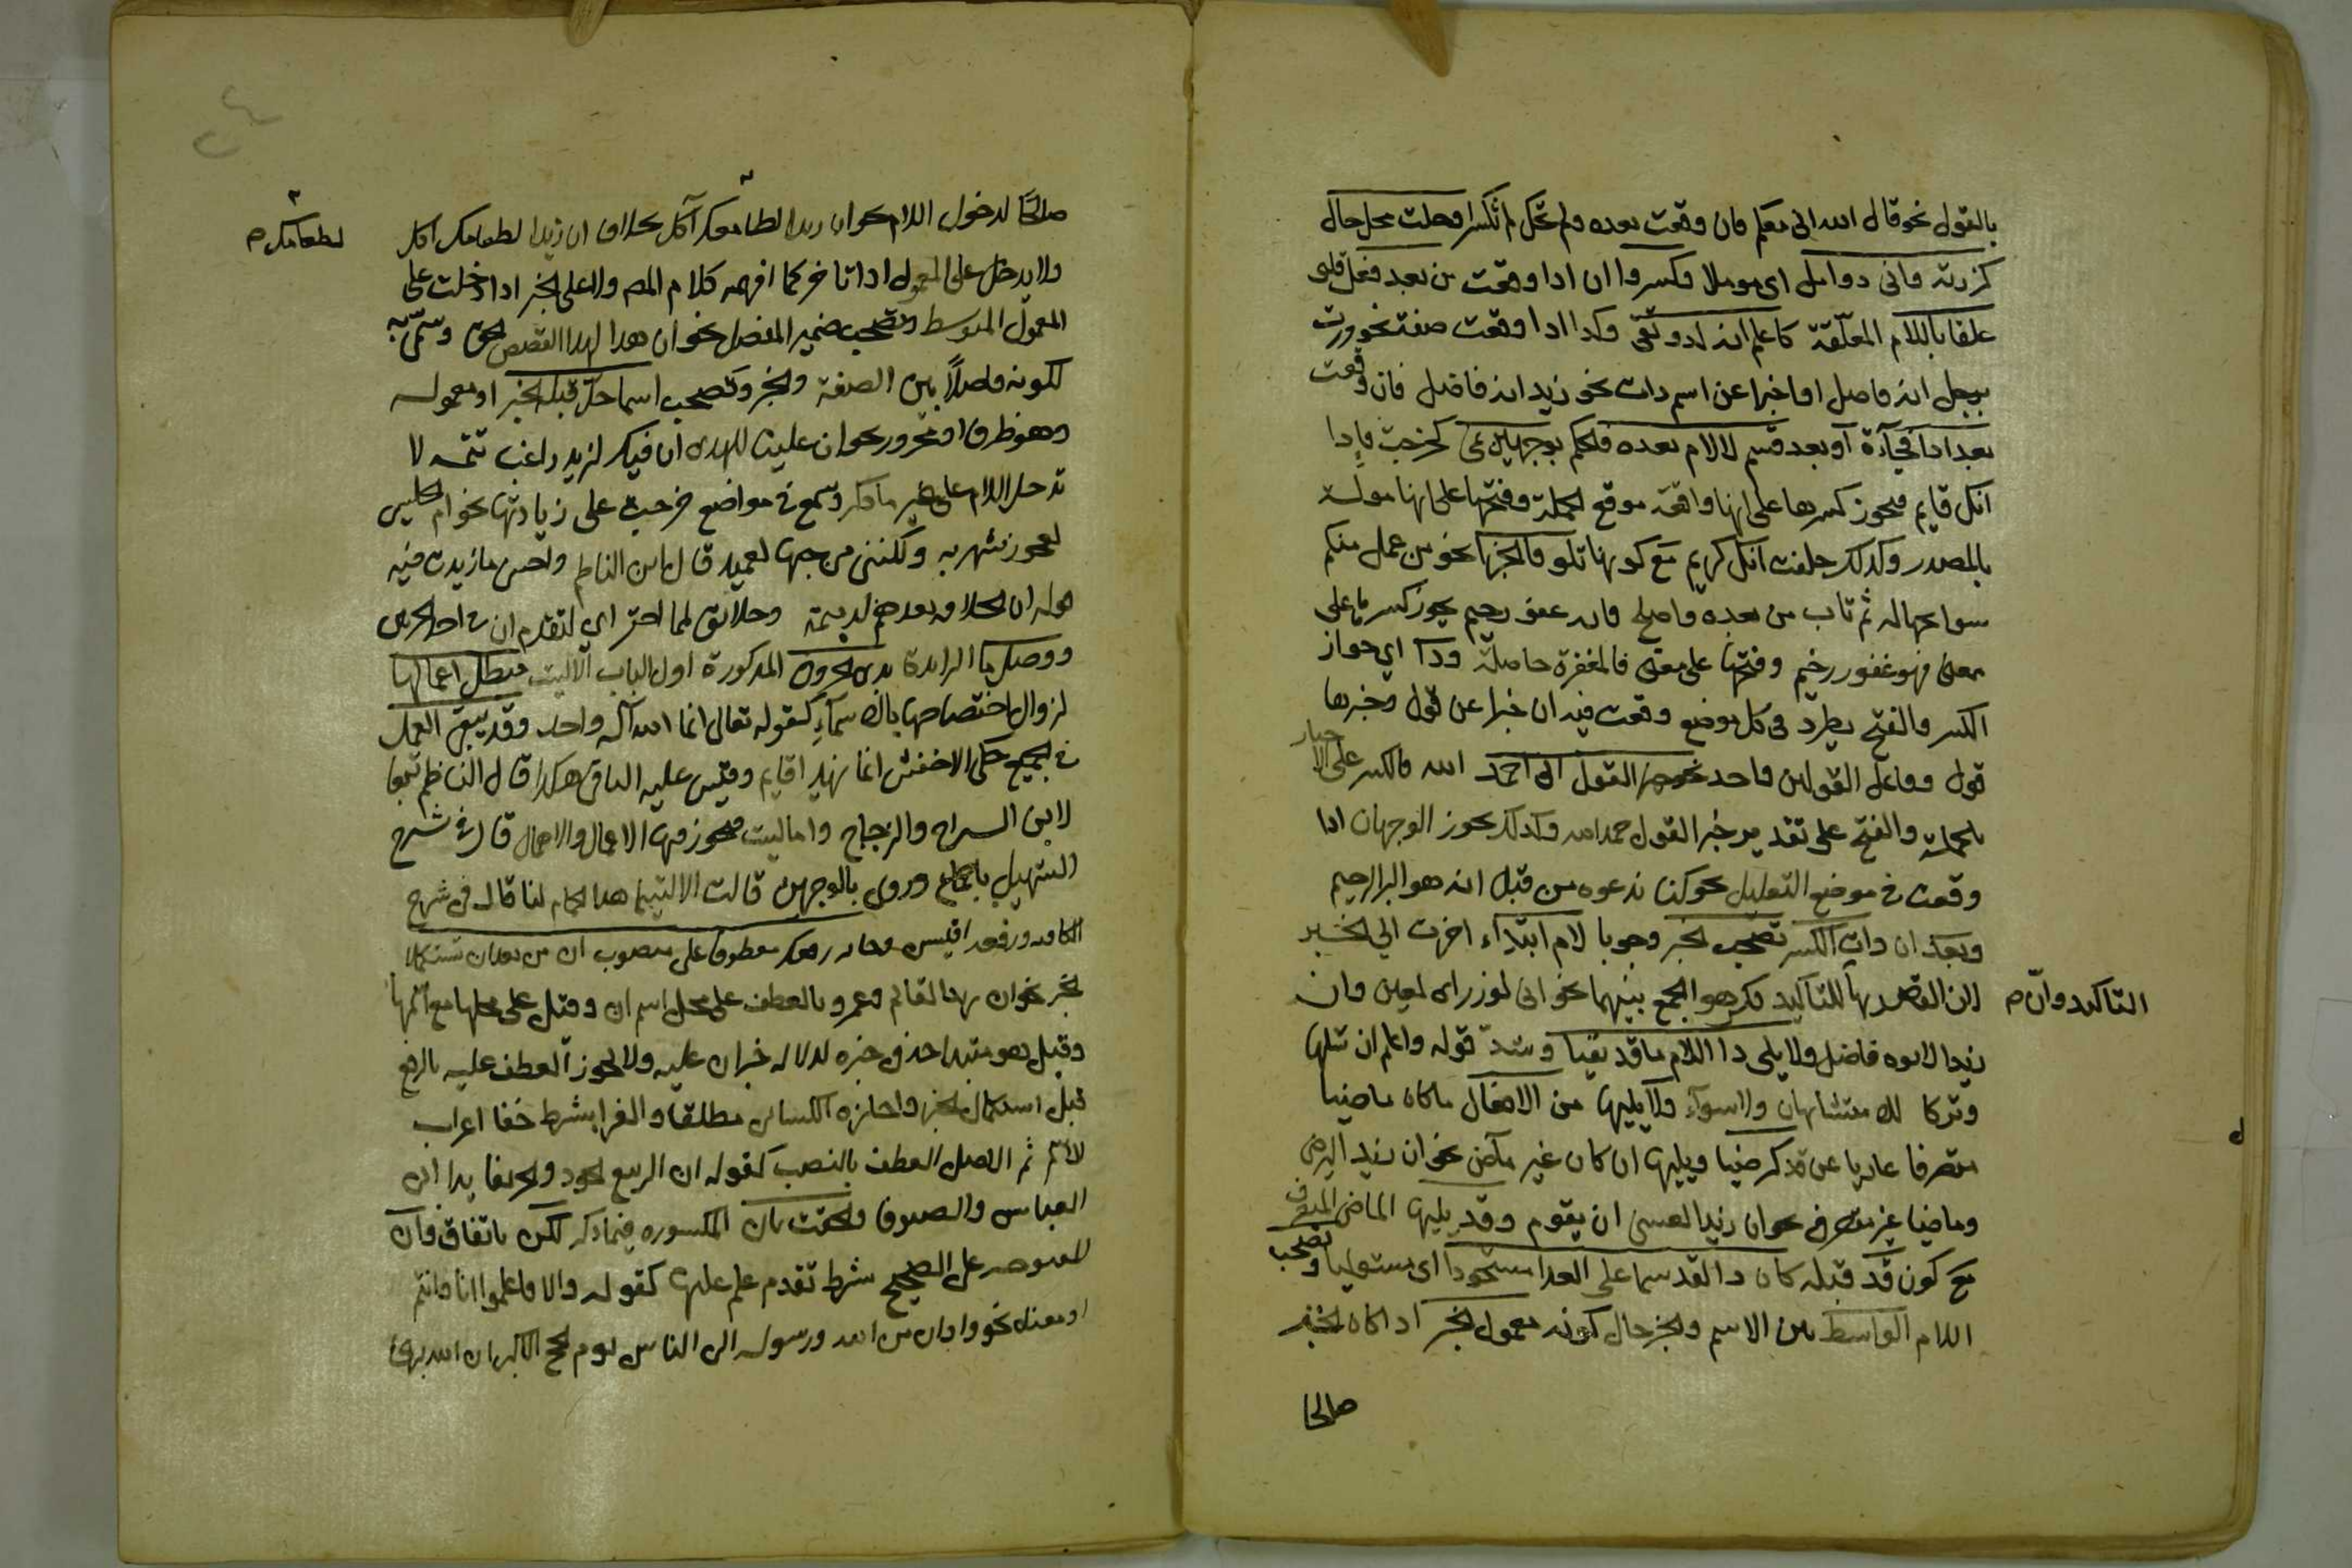 بالقول نحو قال الله اني معكم فان وقعت بعده ولم تحك لم تكسر او حلت محل حال
كزرته واني ذو امل اي مؤملا وكسروا ان اذا وقعت من بعد فعل قلبي
علقا باللام المعلقة كاعلم انه لذو تقى وكذا اذا وقعت صفة نحو مررت
برجل انه فاضل او خبرا عن اسم ذات نحو زيد انه فاضل فان وقعت
بعد اذا فجاءة او بعد قسم لا لام بعده فالحكم بوجهين نمي نحو خرجت فاذا
انك قايم فيجوز كسرها على انها واقعة موقع الجملة وفتحها على انها مؤلة
بالمصدر وكذلك حلفت انك كريم مع كونها تلو فا الجزا نحو من عمل منكم
سوا بجهالة ثم تاب من بعده واصلح فانه غفور رحيم يجوز كسرها على
معنى فهو غفور رحيم وفتحها على معنى فالمغفرة حاصلة وذا اي جواز
الكسر والفتح يطرد في كل موضع وقعت فيه ان خبرا عن قول وخبرها
قول وفاعل القولين واحد نحو خير القول اني احمد الله فالكسر على الاخبار
بالجملة والفتح على تقدير خير القول حمد الله وكذلك يجوز الوجهان اذا
وقعت في موضع التعليل نحو كنا ندعوه من قبل انه هو البر الرحيم
وبعد ان ذات الكسر تصحب الخبر وجوبا لام ابتداء اخرت الى الخبر
لان القصد بها للتاكيد فكرهوا الجمع بينهما نحو اني لوزر اي لمعين وان
التاكيد وان م
زيدا لابوه فاضل ولا يلي ذا اللام ما قد نفيا وشذ قوله واعلم ان تسليما
وتركا للا متشابهان ولا سواء ولا يليها من الافعال ما كان ماضيا
متصرفا عاريا عن قد كرضيا ويليها ان كان غير ماض نحو ان زيدا ليرضى
وماضيا غير متصرف نحو ان زيدا لعسى ان يقوم وقد يليها الماضي المتصرف
مع كون قد قبله كان ذا لقد سما على العدا مستحوذا اي مستوليا وتصحب
اللام الواسط بين الاسم والخبر حال كونه معمول الخبر اذا كان الخبر
صالحا
صالحا لدخول اللام نحو ان زيدا لطعامك آكل بخلاف ان زيدا لطعامك اكل
لطعامك م
ولا يدخل على المعمول اذا تاخر كما افهمه كلام المص ولا على الخبر اذا دخلت على
المعمول المتوسط وتصحب ضمير الفصل نحو ان هذا لهو القصص الحق وسمي به
لكونه فاصلا بين الصفة والخبر وتصحب اسما حل قبله الخبر او معموله
وهو ظرف او مجرور نحو ان علينا للهدى ان فيك لزيد راغب تتمه لا
تدخل اللام على غير ما ذكر وسمع في مواضع خرجت على زيادتها نحو ام الحليس
لعجوز شهربه ولكنني من حبها لعميد قال ابن الناظم واحسن ما زيدت فيه
قوله ان الخلافة بعدهم لدميمة وخلائف لما احقر اي لتقدم ان في احد الجزءين
ووصل ما الزايدة بذي الحروف المذكورة اول الباب الا ليت مبطل اعمالها
لزوال اختصاصها بالاسماء كقوله تعالى انما الله اله واحد وقد يبقى العمل
في الجميع حكى الاخفش انما زيدا قايم وقيس عليه الباقي هكذا قال الناظم تبعا
لابن السراج والزجاج واما ليت فيجوز فيها الاعمال والاهمال قال في شرح
التسهيل باجماع وروي بالوجهين قالت الا ليتما هذا الحمام لنا قال في شرح
الكافيه ورفعه اقيس وجايز رفعك معطوفا على منصوب ان من بعد ان تستكملا
الخبر نحو ان زيدا لقايم وعمرو بالعطف على محل اسم ان وقيل على محلها مع اسمها
وقيل هو مبتدا حذف خبره لدلالة خبر ان عليه ولا يجوز العطف عليه بالرفع
قبل استكمال الخبر واجازه الكسائي مطلقا والفرا بشرط خفا اعراب
الاسم ثم الاصل العطف بالنصب كقوله ان الربيع الجود والخريفا يدا ابي
العباس والصيوفا والحقت بان المكسوره فيما ذكر لكن باتفاق وان
المفتوحه على الصحيح بشرط تقدم علم عليها كقوله والا فاعلموا انا وانتم
او معناه نحو واذان من الله ورسوله الى الناس يوم الحج الاكبر ان الله بريء